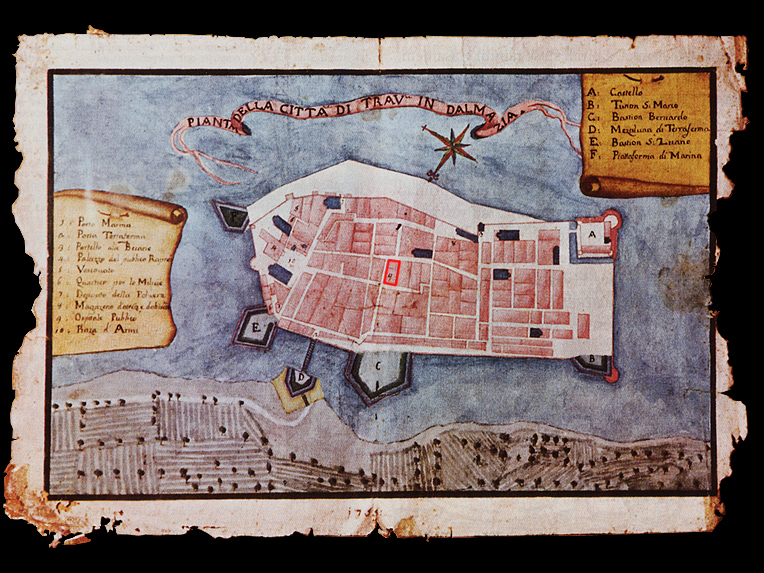 PIANTA DELLA CITTÀ DI TRAV IN DALMAZIA
A: Castello
B: Turion S: Marco
C: Bastion Bernardo
D: Mezaluna di Terraferma
E: Bastion S:
F: Piattaforma di Marina
Porta Marina
Porta Terraferma
Portello alle Becarie
4. Palazzo del publico
5. Vescovato
6. Quartier per le Milicie
7. Deposito della Polvere
Magazeno
9. Ospitale Publico
10. Piaza d'Armi
F
A
9
E
D
C
B